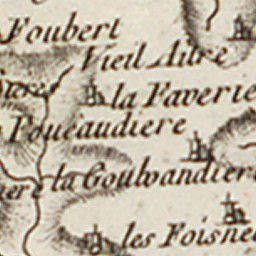 Foubert
Vieil Aitre
la Faverie
Foucaudiere
la Goulvandiere
les Foisne